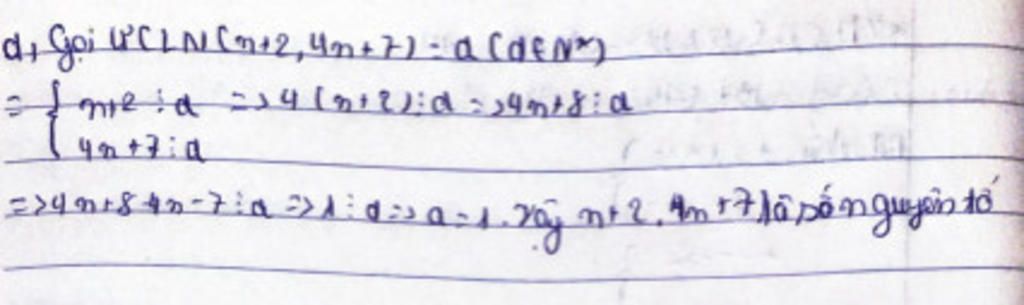 d, Gọi ƯCLN(n+2, 4n+7) = d (d∈N*)
=> { n+2 ⋮ d => 4(n+2) ⋮ d => 4n+8 ⋮ d
4n+7 ⋮ d
=> 4n+8-4n-7 ⋮ d => 1 ⋮ d => d=1. Vậy n+2, 4n+7 là số nguyên tố